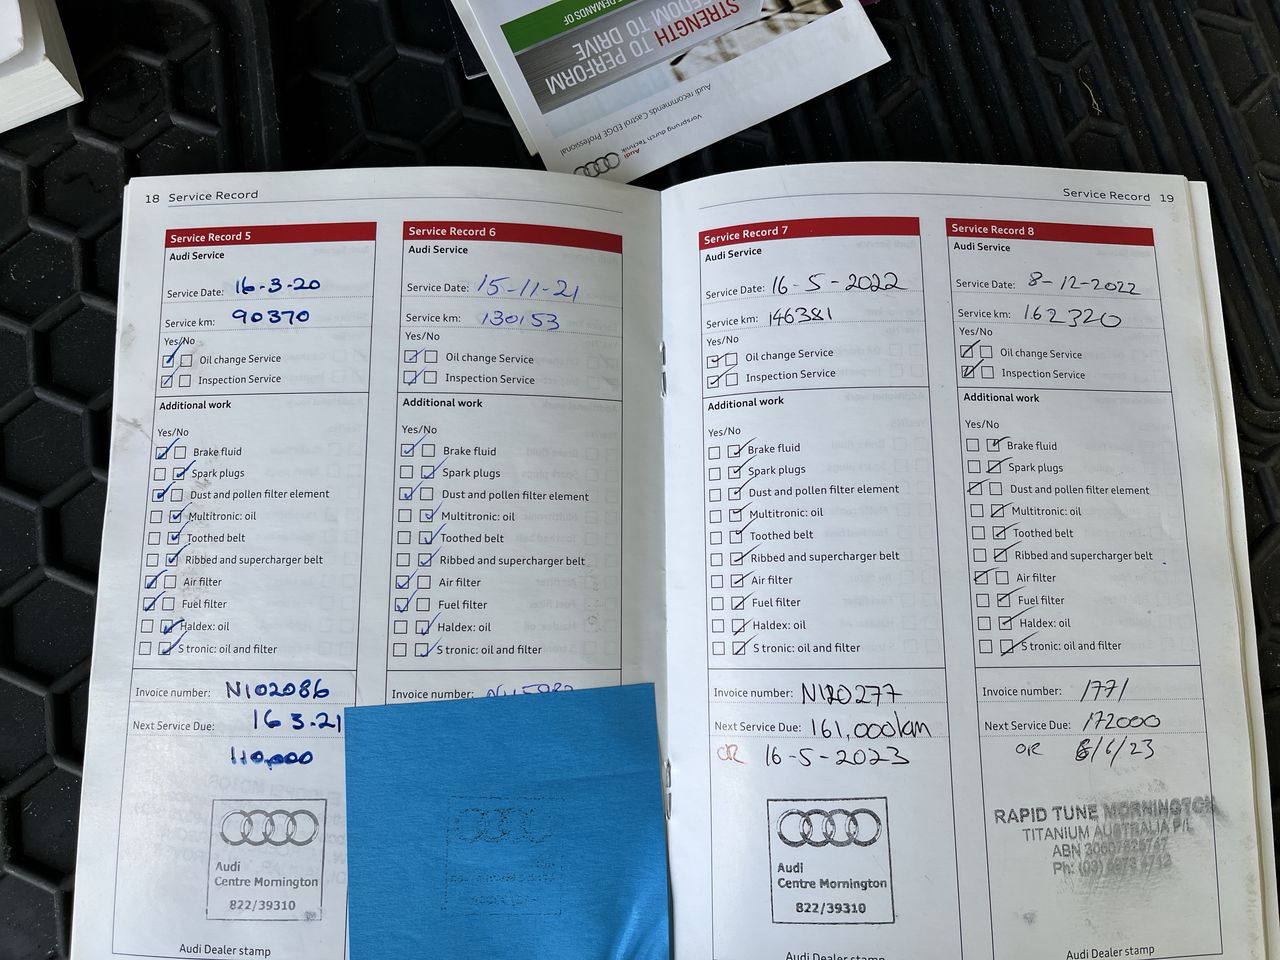 DEMANDS OF
STRENGTH TO PERFORM
FREEDOM TO DRIVE
Audi recommends Castrol EDGE Professional
Vorsprung durch Technik
Audi
18 Service Record
Service Record 5
Audi Service
Service Date: 16-3-20
Service km: 90370
Yes/No
Oil change Service
Inspection Service
Additional work
Yes/No
Brake fluid
Spark plugs
Dust and pollen filter element
Multitronic: oil
Toothed belt
Ribbed and supercharger belt
Air filter
Fuel filter
Haldex: oil
S tronic: oil and filter
Invoice number: N102086
Next Service Due: 16 3-21
110,000
Audi
Centre Mornington
822/39310
Audi Dealer stamp
Service Record 6
Audi Service
Service Date: 15-11-21
Service km: 130153
Yes/No
Oil change Service
Inspection Service
Additional work
Yes/No
Brake fluid
Spark plugs
Dust and pollen filter element
Multitronic: oil
Toothed belt
Ribbed and supercharger belt
Air filter
Fuel filter
Haldex: oil
S tronic: oil and filter
Invoice number:
Service Record 19
Service Record 7
Audi Service
Service Date: 16-5-2022
Service km: 146381
Yes/No
Oil change Service
Inspection Service
Additional work
Yes/No
Brake fluid
Spark plugs
Dust and pollen filter element
Multitronic: oil
Toothed belt
Ribbed and supercharger belt
Air filter
Fuel filter
Haldex: oil
S tronic: oil and filter
Invoice number: N120277
Next Service Due: 161,000km
OR 16-5-2023
Audi
Centre Mornington
822/39310
Audi Dealer stamp
Service Record 8
Audi Service
Service Date: 8-12-2022
Service km: 162320
Yes/No
Oil change Service
Inspection Service
Additional work
Yes/No
Brake fluid
Spark plugs
Dust and pollen filter element
Multitronic: oil
Toothed belt
Ribbed and supercharger belt
Air filter
Fuel filter
Haldex: oil
S tronic: oil and filter
Invoice number: 1771
Next Service Due: 172000
OR 8/6/23
RAPID TUNE MORNINGTON
TITANIUM AUSTRALIA P/L
ABN
Ph: (03)
Audi Dealer stamp